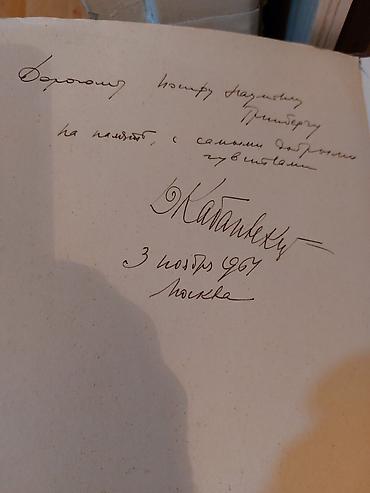 Дорогому Иосифу Наумовичу
Гринбергу
на память, с самыми добрыми
чувствами
ДКабалевский
3 ноября
Москва